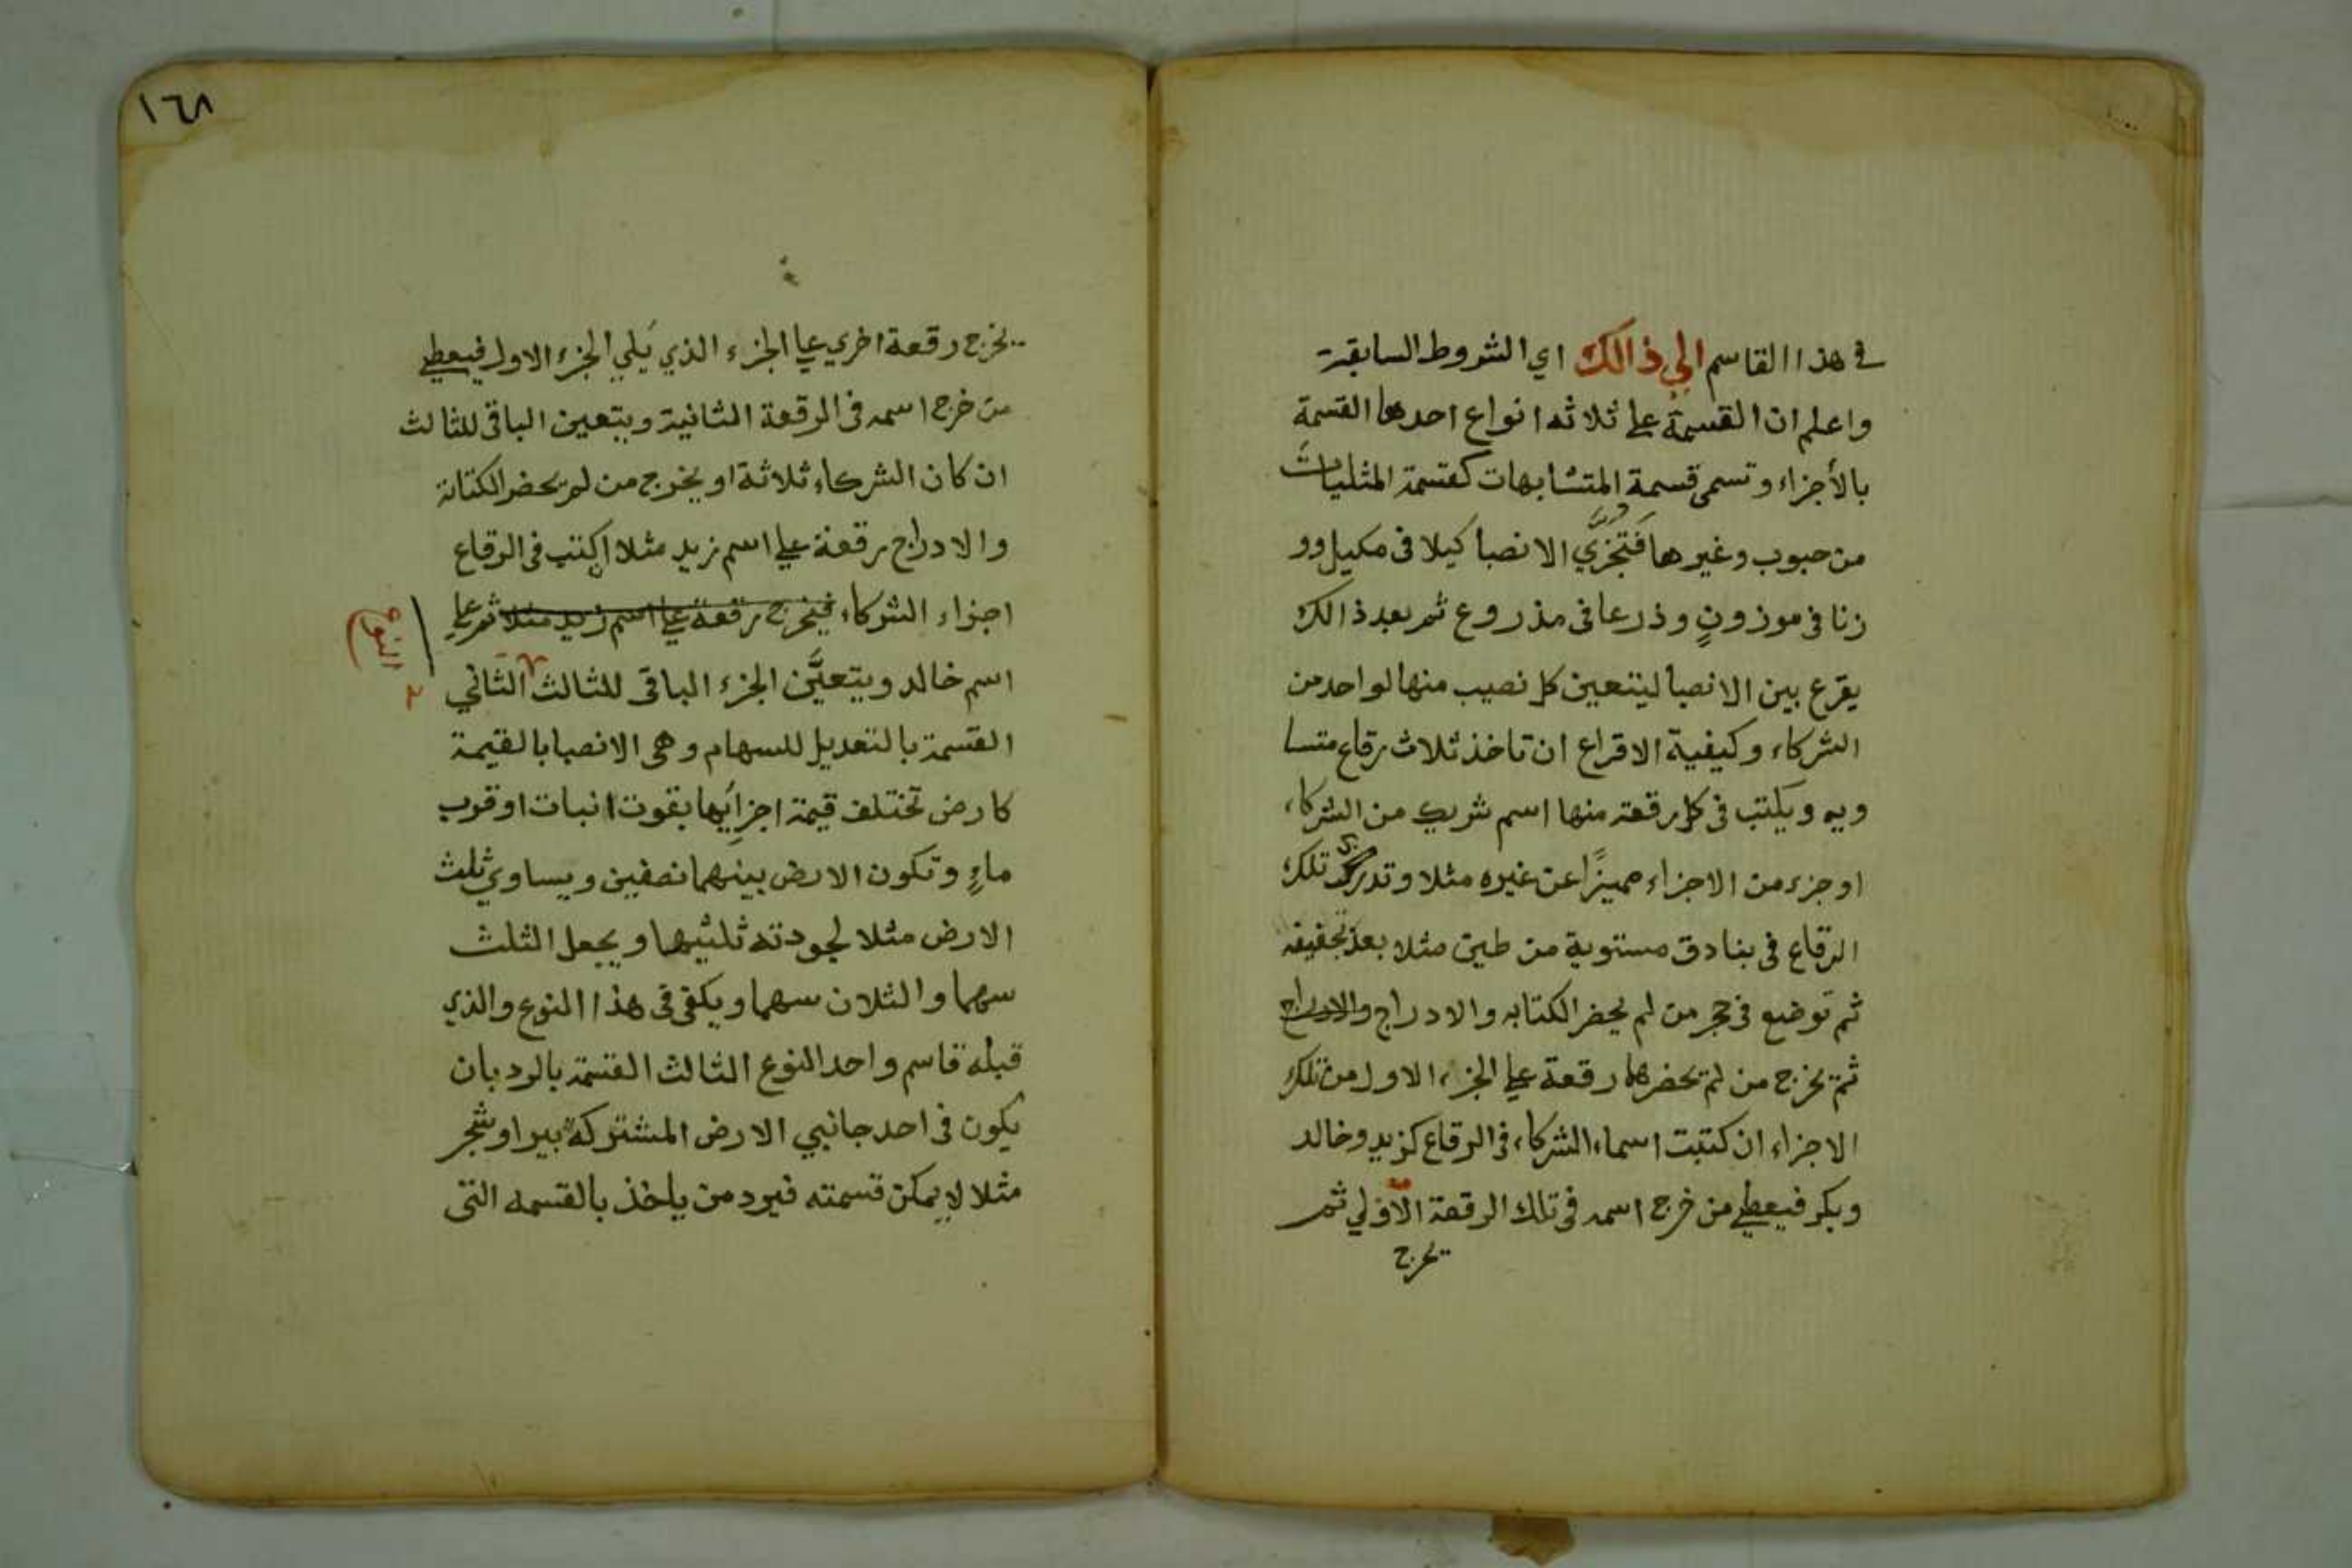 في هذا القاسم الي ذالك اي الشروط السابقة
واعلم ان القسمة علي ثلاثه انواع احدها القسمة
بالأجزاء وتسمى قسمة المتشابهات كقسمة المثليات
من حبوب وغيرها فتجزي الانصبا كيلا في مكيل وو
زنا في موزونٍ وذرعا في مذروع ثم بعد ذالك
يقرع بين الانصبا ليتعين كل نصيب منها لواحد من
الشركاء وكيفية الاقراع ان تاخذ ثلاث رقاع متسا
ويه ويكتب في كل رقعة منها اسم شريك من الشركاء
او جزء من الاجزاء مميزًا عن غيره مثلا وتدرج تلك
الرقاع في بنادق مستوية من طين مثلا بعد تجفيفه
ثم توضع في حجر من لم يحضر الكتابه والادراج والادراج
ثم يخرج من لم يحضرها رقعة علي الجزء الاول من تلك
الاجزاء ان كتبت اسماء الشركاء في الرقاع كزيد وخالد
وبكر فيعطي من خرج اسمه في تلك الرقعة الاولي ثم
يخرج
١٦٨
يخرج رقعة اخري علي الجزء الذي يَلي الجزء الاول فيعطي
من خرج اسمه في الرقعة الثانية ويتعين الباقي للثالث
ان كان الشركاء ثلاثة او يخرج من لم يحضر الكتابة
والادراج رقعة علي اسم زيد مثلا ان كتب في الرقاع
اجزاء الشركاء فيخرج رقعة علي اسم زيد مثلا ثم علي
اسم خالد ويتعيَّن الجزء الباقي للثالث الثاني
النوع
القسمة بالتعديل للسهام وهي الانصبا بالقيمة
كارض تختلف قيمة اجزايها بقوت انبات او قرب
ماءٍ وتكون الارض بينهما نصفين ويساوي ثلث
الارض مثلا لجودته ثلثيها ويجعل الثلث
سهما والثلان سهما ويكفي في هذا النوع والذي
قبله قاسم واحد النوع الثالث القسمة بالرد بان
يكون في احد جانبي الارض المشتركة بير او شجر
مثلا لا يمكن قسمته فيرد من ياخذ بالقسمه التي